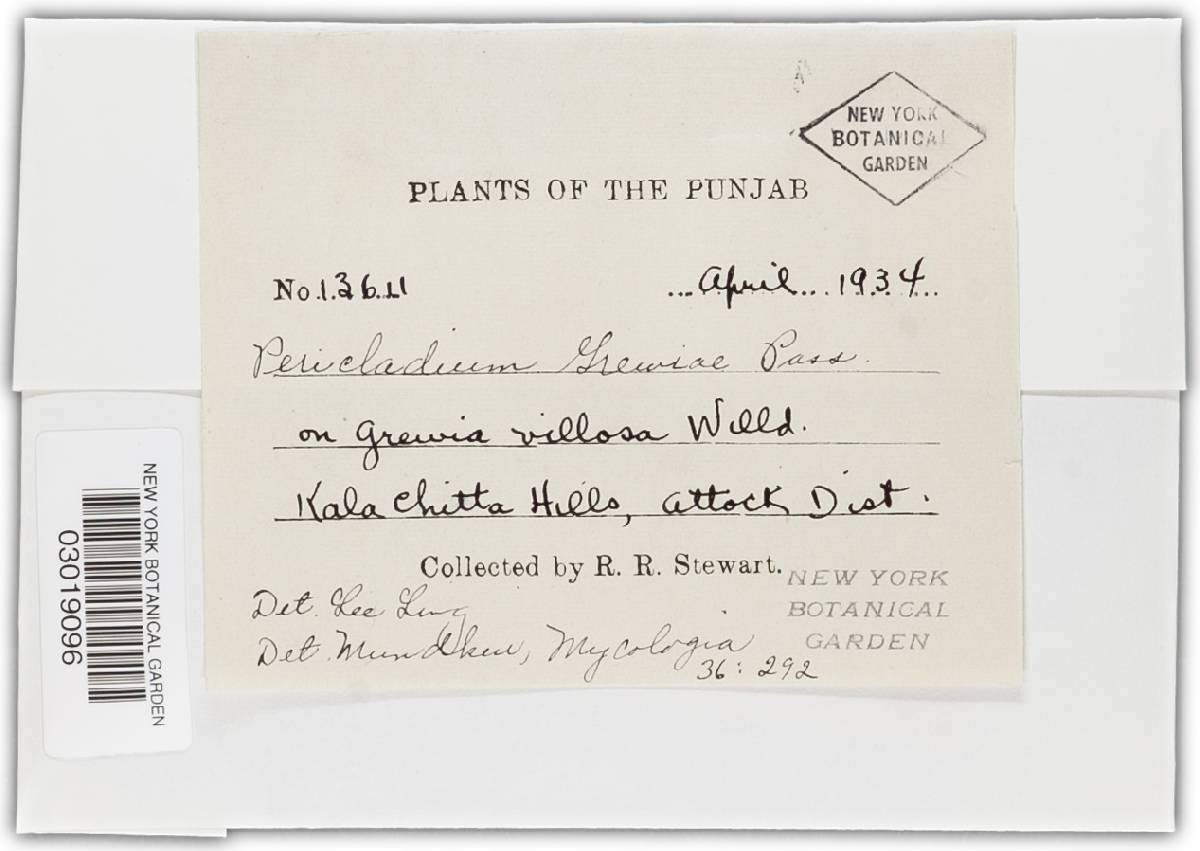 NEW YORK
BOTANICAL
GARDEN
PLANTS OF THE PUNJAB
No. 13611 April 1934
Pericladium Grewiae Pass.
on Grewia villosa Willd.
Kala Chitta Hills, Attock Dist.
Collected by R. R. Stewart.
Det. Lee Ling
Det. Mundkur, Mycologia
36: 292
NEW YORK
BOTANICAL
GARDEN
NEW YORK BOTANICAL GARDEN
03019096